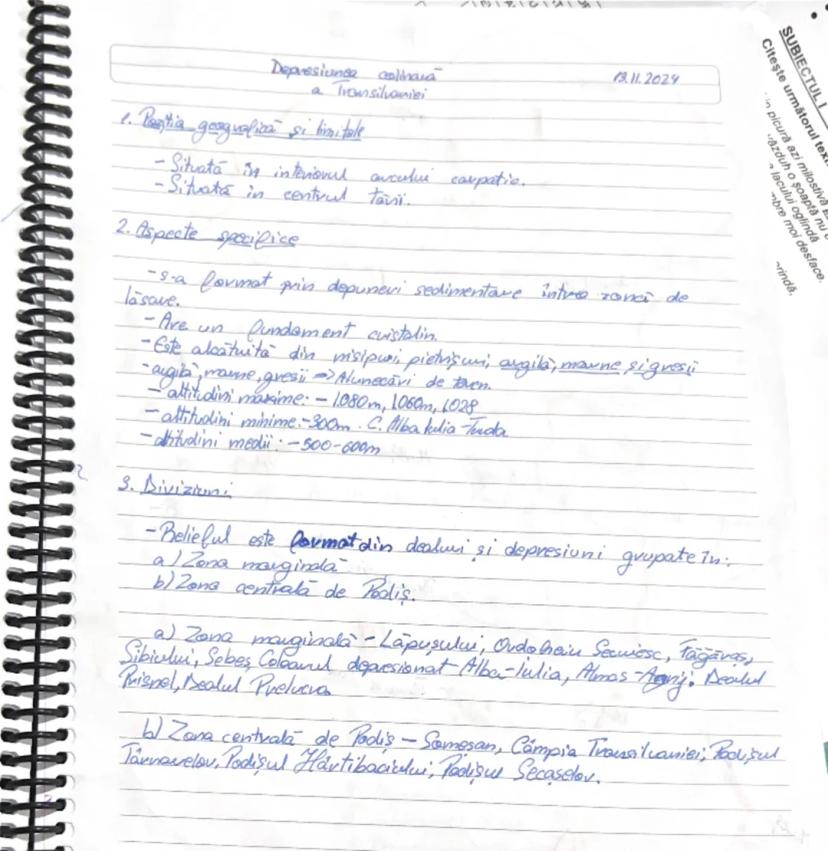 Depresiunea colinară 19.11.2024
a Transilvaniei
1. Poziția geografică și limitele
- Situată în interiorul arcului carpatic.
- Situată în centrul țării.
2. Aspecte specifice
- s-a format prin depuneri sedimentare într-o zonă de
lăsare.
- Are un fundament cristalin.
- Este alcătuită din nisipuri, pietrișuri, argilă, marne, și gresii
- argilă, marne, gresii => Alunecări de teren.
- altitudini maxime: - 1080m, 1060m, 1028
- altitudini minime: -300m. C. Alba Iulia-Turda
- altitudini medii: -500-600m
3. Diviziuni
- Relieful este format din dealuri și depresiuni grupate în:
a) Zona marginală
b) Zona centrală de Podiș.
a) Zona marginală - Lăpușului, Odorheiu Secuiesc, Făgăraș,
Sibiului, Sebeș, Coloarul depresionat Alba-Iulia, Almaș-Agrij. Dealul
Prisnel, Dealul Preluca
b) Zona centrală de Podiș - Someșan, Câmpia Transilvaniei, Podișul
Târnavelor, Podișul Hârtibaciului, Podișul Secașelor.
SUBIECTUL I
Citește următorul text
picură azi milostivă
văzduh o șoaptă nu
lacului oglindă
moi desface